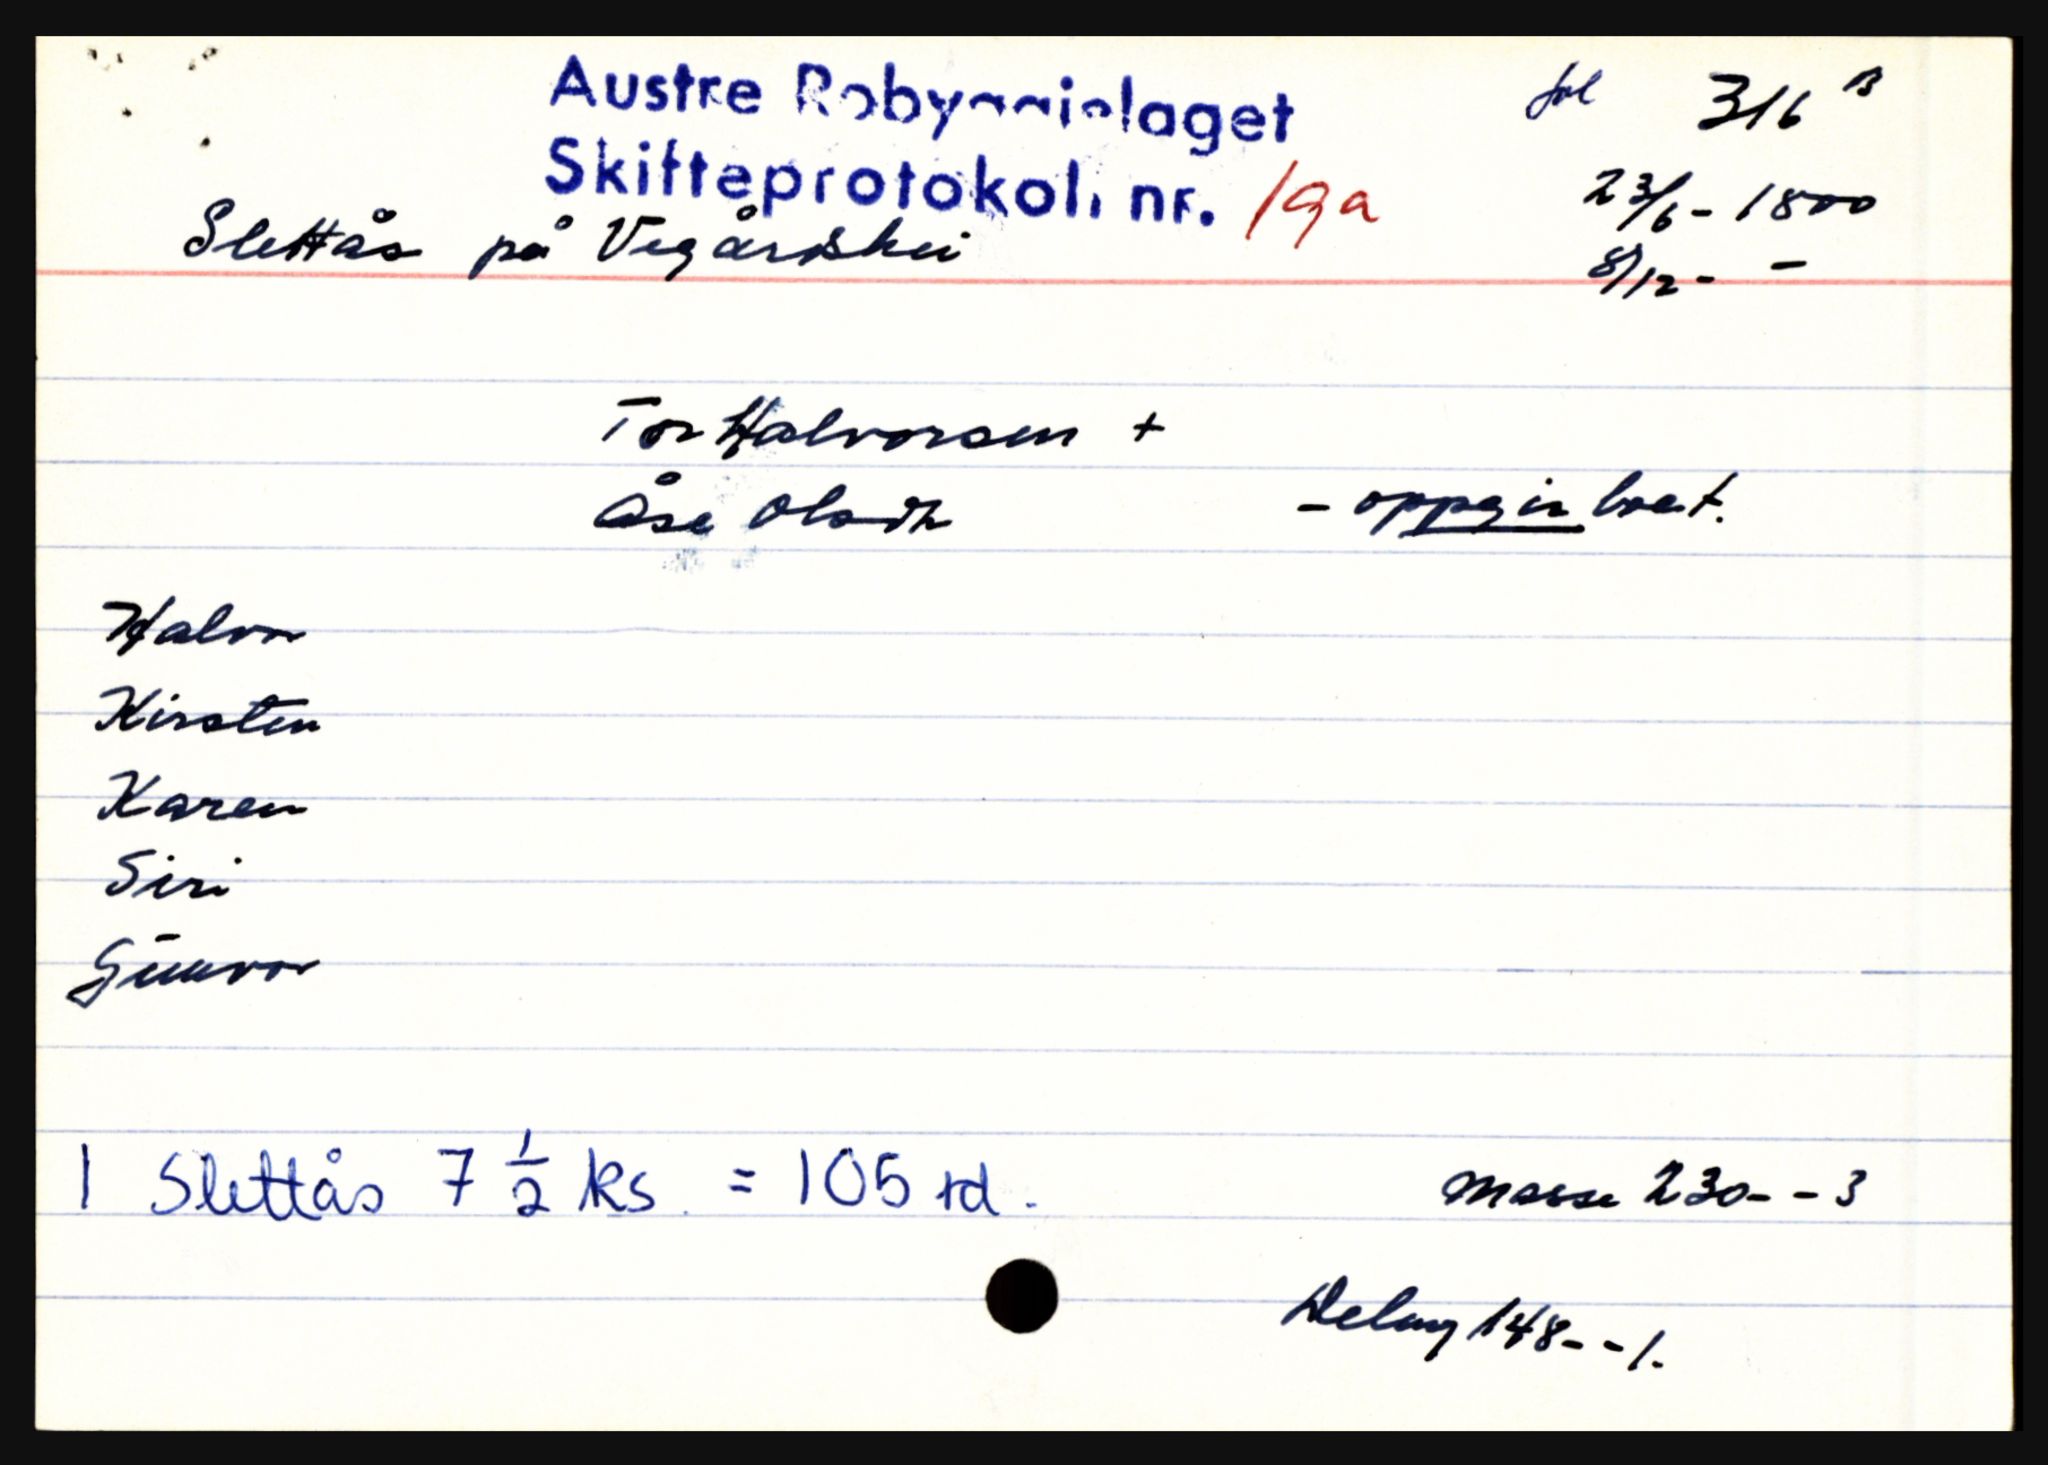 Austre Robyggjelaget
Skifteprotokoll nr. 19a
fol 316 B
23/6 - 1800
8/12 - -
Slettås på Vegårshei
Tor Halvorsen +
Åse Olsdtr - oppgir boet.
Halvor
Kirsten
Karen
Siri
Gunvor
1 Slettås 7 1/2 ks. = 105 rd.
Masse 230 - - 3
Deling 148 - - 1.